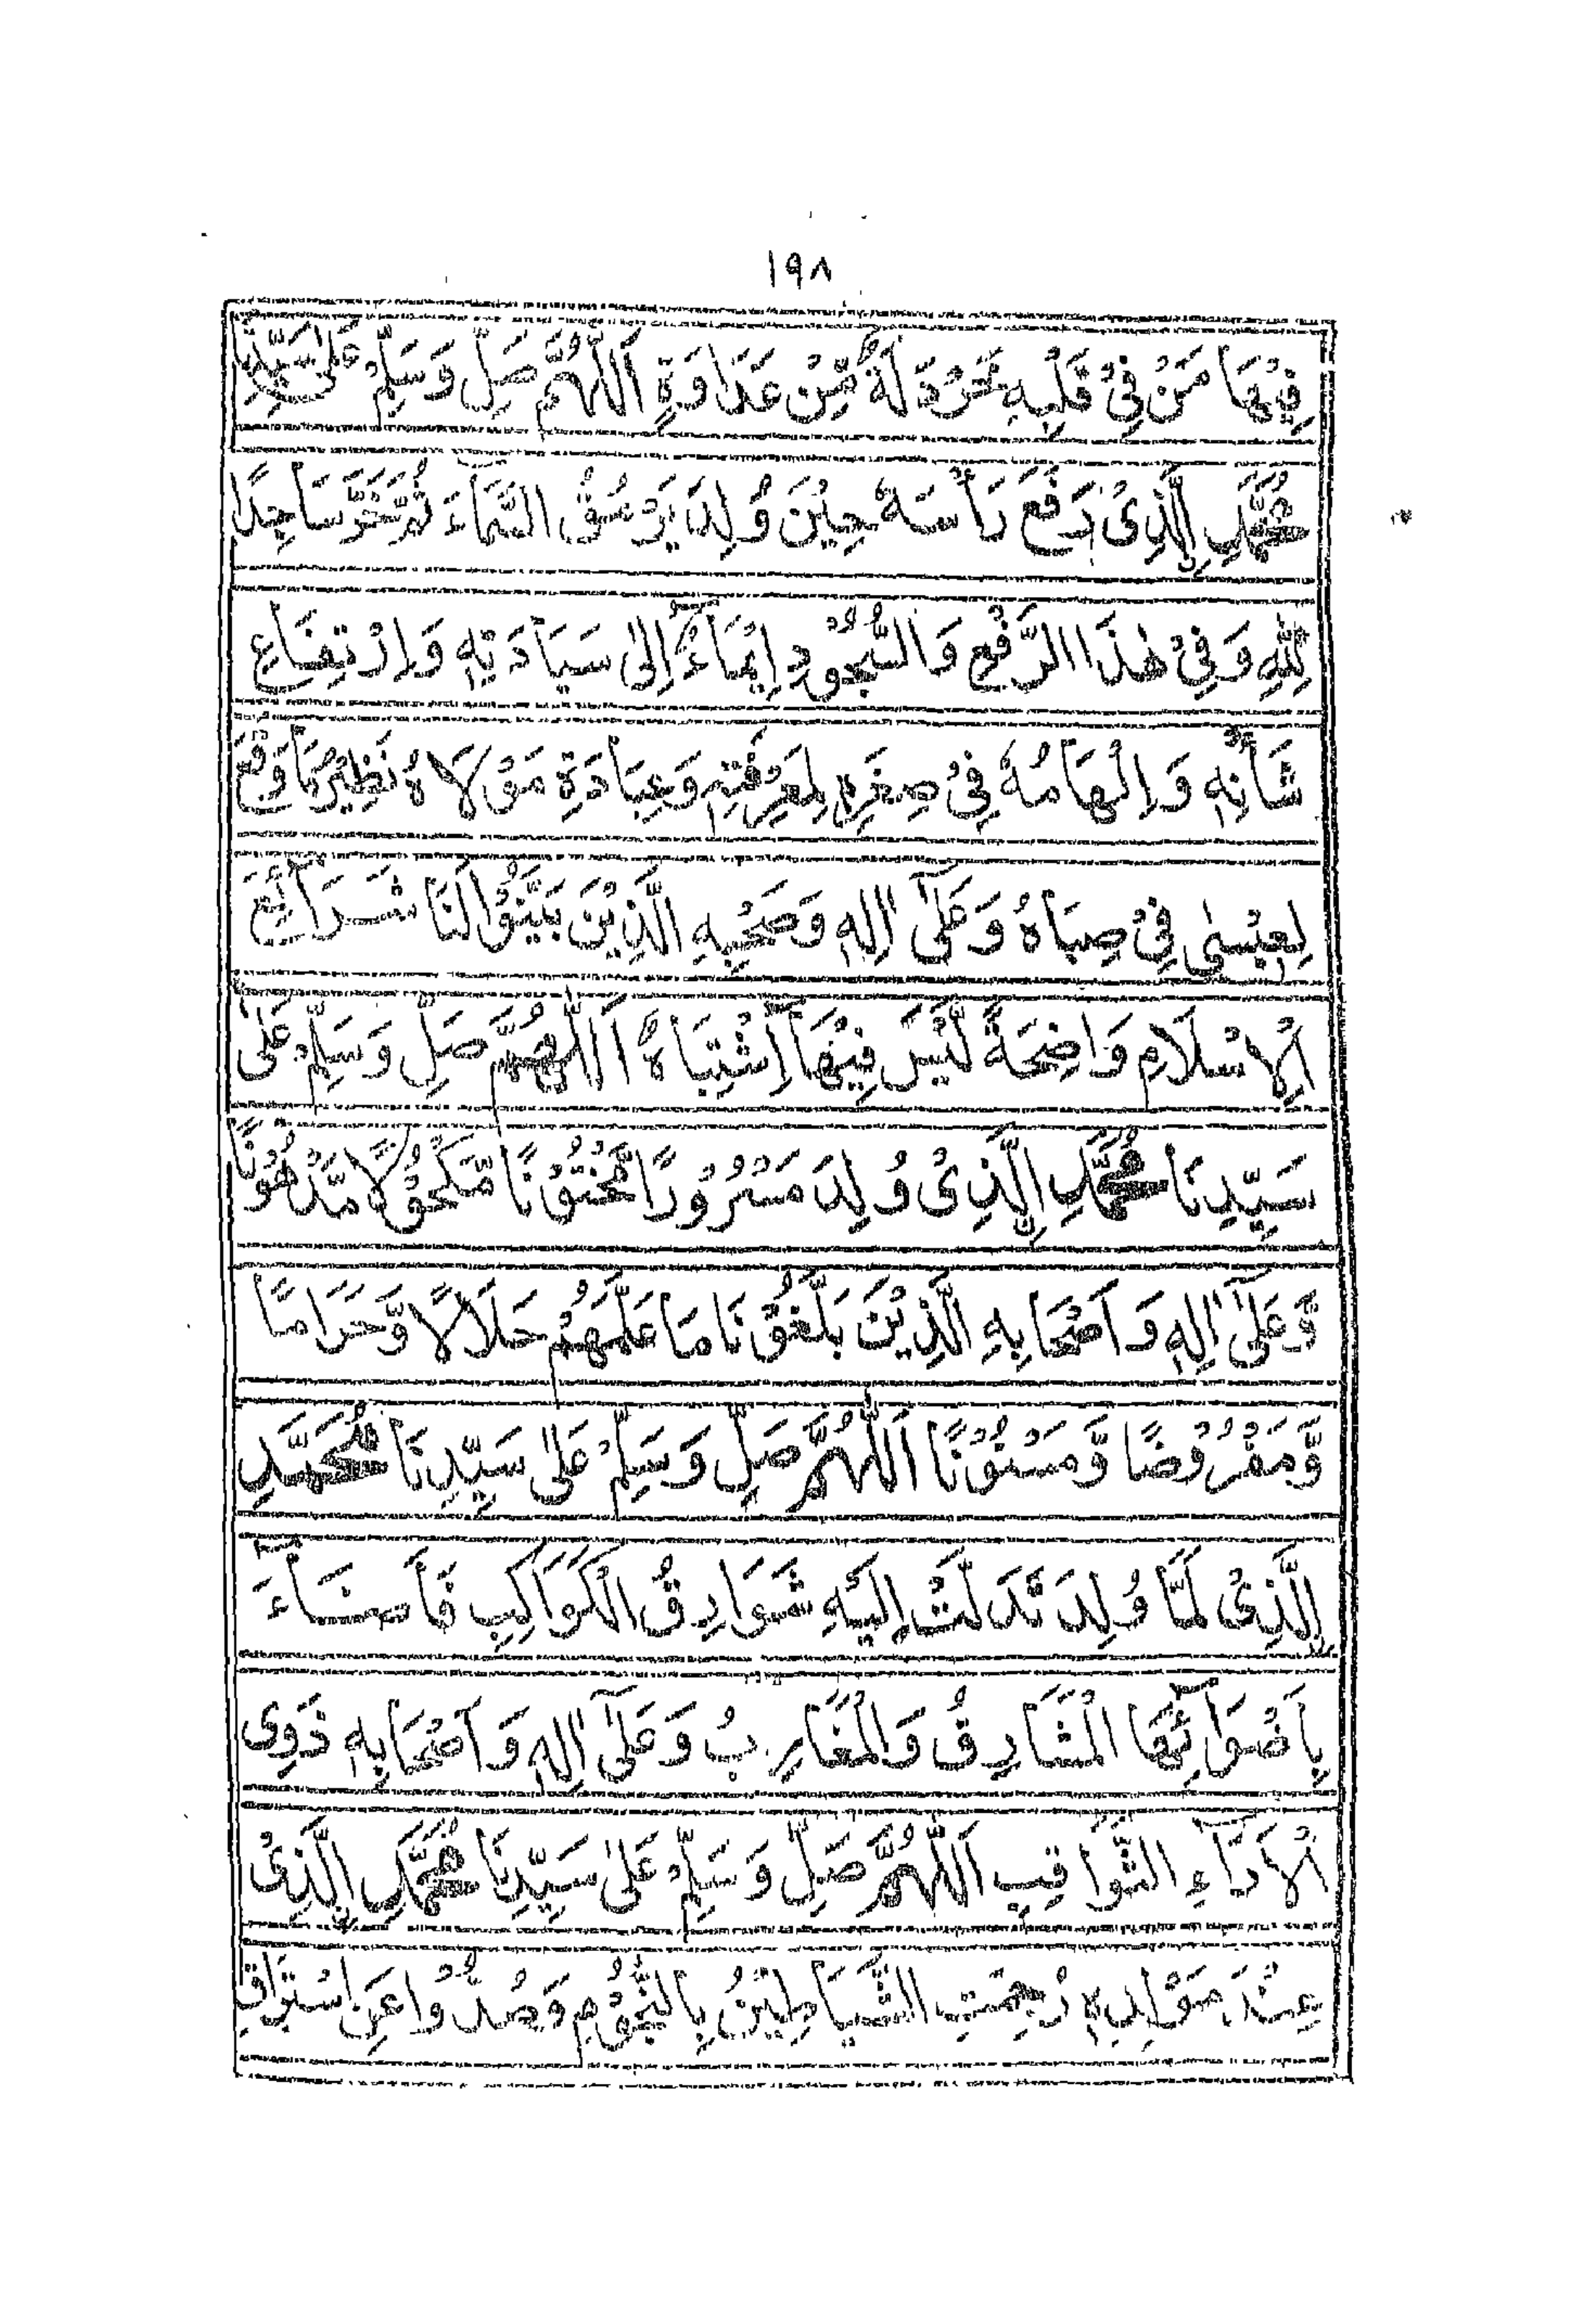 ١٩٨
فِيْهَا مَنْ فِيْ قَلْبِهِ خَرْدَلَةٌ مِّنْ عَدَاوَةٍ اَللّٰهُمَّ صَلِّ وَسَلِّمْ عَلٰى سَيِّدِنَا
مُحَمَّدِ ۨالَّذِىْ رَفَعَ رَأْسَهٗ حِيْنَ وُلِدَ يَرْمُقُ السَّمَآءَ ثُمَّ خَرَّ سَاجِدًا
لِلّٰهِ وَفِيْ هٰذَا الرَّفْعِ وَالسُّجُوْدِ اِيْمَآءٌ اِلٰى سِيَادَتِهٖ وَارْتِفَاعِ
شَأْنِهٖ وَاِلْهَامُهٗ فِيْ صِغَرِهٖ لِمَعْرِفَتِهٖ وَعِبَادَةِ مَوْلَاهُ نَظِيْرُ مَا وَقَعَ
لِعِيْسٰى فِيْ صِبَاهُ وَعَلٰٓى اٰلِهٖ وَصَحْبِهِ الَّذِيْنَ بَيَّنُوْا لَنَا شَرَآئِعَ
الْاِسْلَامِ وَاضِحَةً لَيْسَ فِيْهَا اشْتِبَاهٌ اَللّٰهُمَّ صَلِّ وَسَلِّمْ عَلٰى
سَيِّدِنَا مُحَمَّدِ ۨالَّذِىْ وُلِدَ مَسْرُوْرًا مَّخْتُوْنًا مَّكْحُوْلًا مَّدْهُوْنًا
وَّعَلٰٓى اٰلِهٖ وَاَصْحَابِهِ الَّذِيْنَ بَلَّغُوْنَا مَا عَلَّمَهُمْ حَلَالًا وَّحَرَامًا
وَّمَفْرُوْضًا وَّمَسْنُوْنًا اَللّٰهُمَّ صَلِّ وَسَلِّمْ عَلٰى سَيِّدِنَا مُحَمَّدِ
ۨالَّذِىْ لَمَّا وُلِدَ تَدَلَّتْ اِلَيْهِ شَوَارِقُ الْكَوَاكِبِ فَاَضَآءَ
بِاَضْوَآئِهَا الْمَشَارِقُ وَالْمَغَارِبُ وَعَلٰٓى اٰلِهٖ وَاَصْحَابِهٖ ذَوِى
الْاٰرَآءِ الثَّوَاقِبِ اَللّٰهُمَّ صَلِّ وَسَلِّمْ عَلٰى سَيِّدِنَا مُحَمَّدِ ۨالَّذِىْ
عِنْدَ مَوْلِدِهٖ رُجِمَتِ الشَّيَاطِيْنُ بِالنُّجُوْمِ وَصُدُّوْا عَنِ اسْتِرَاقِ